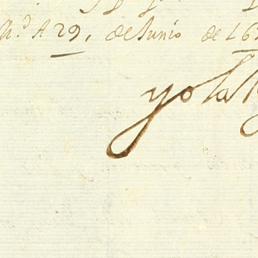 A 29, de Junio de 16
yo la R